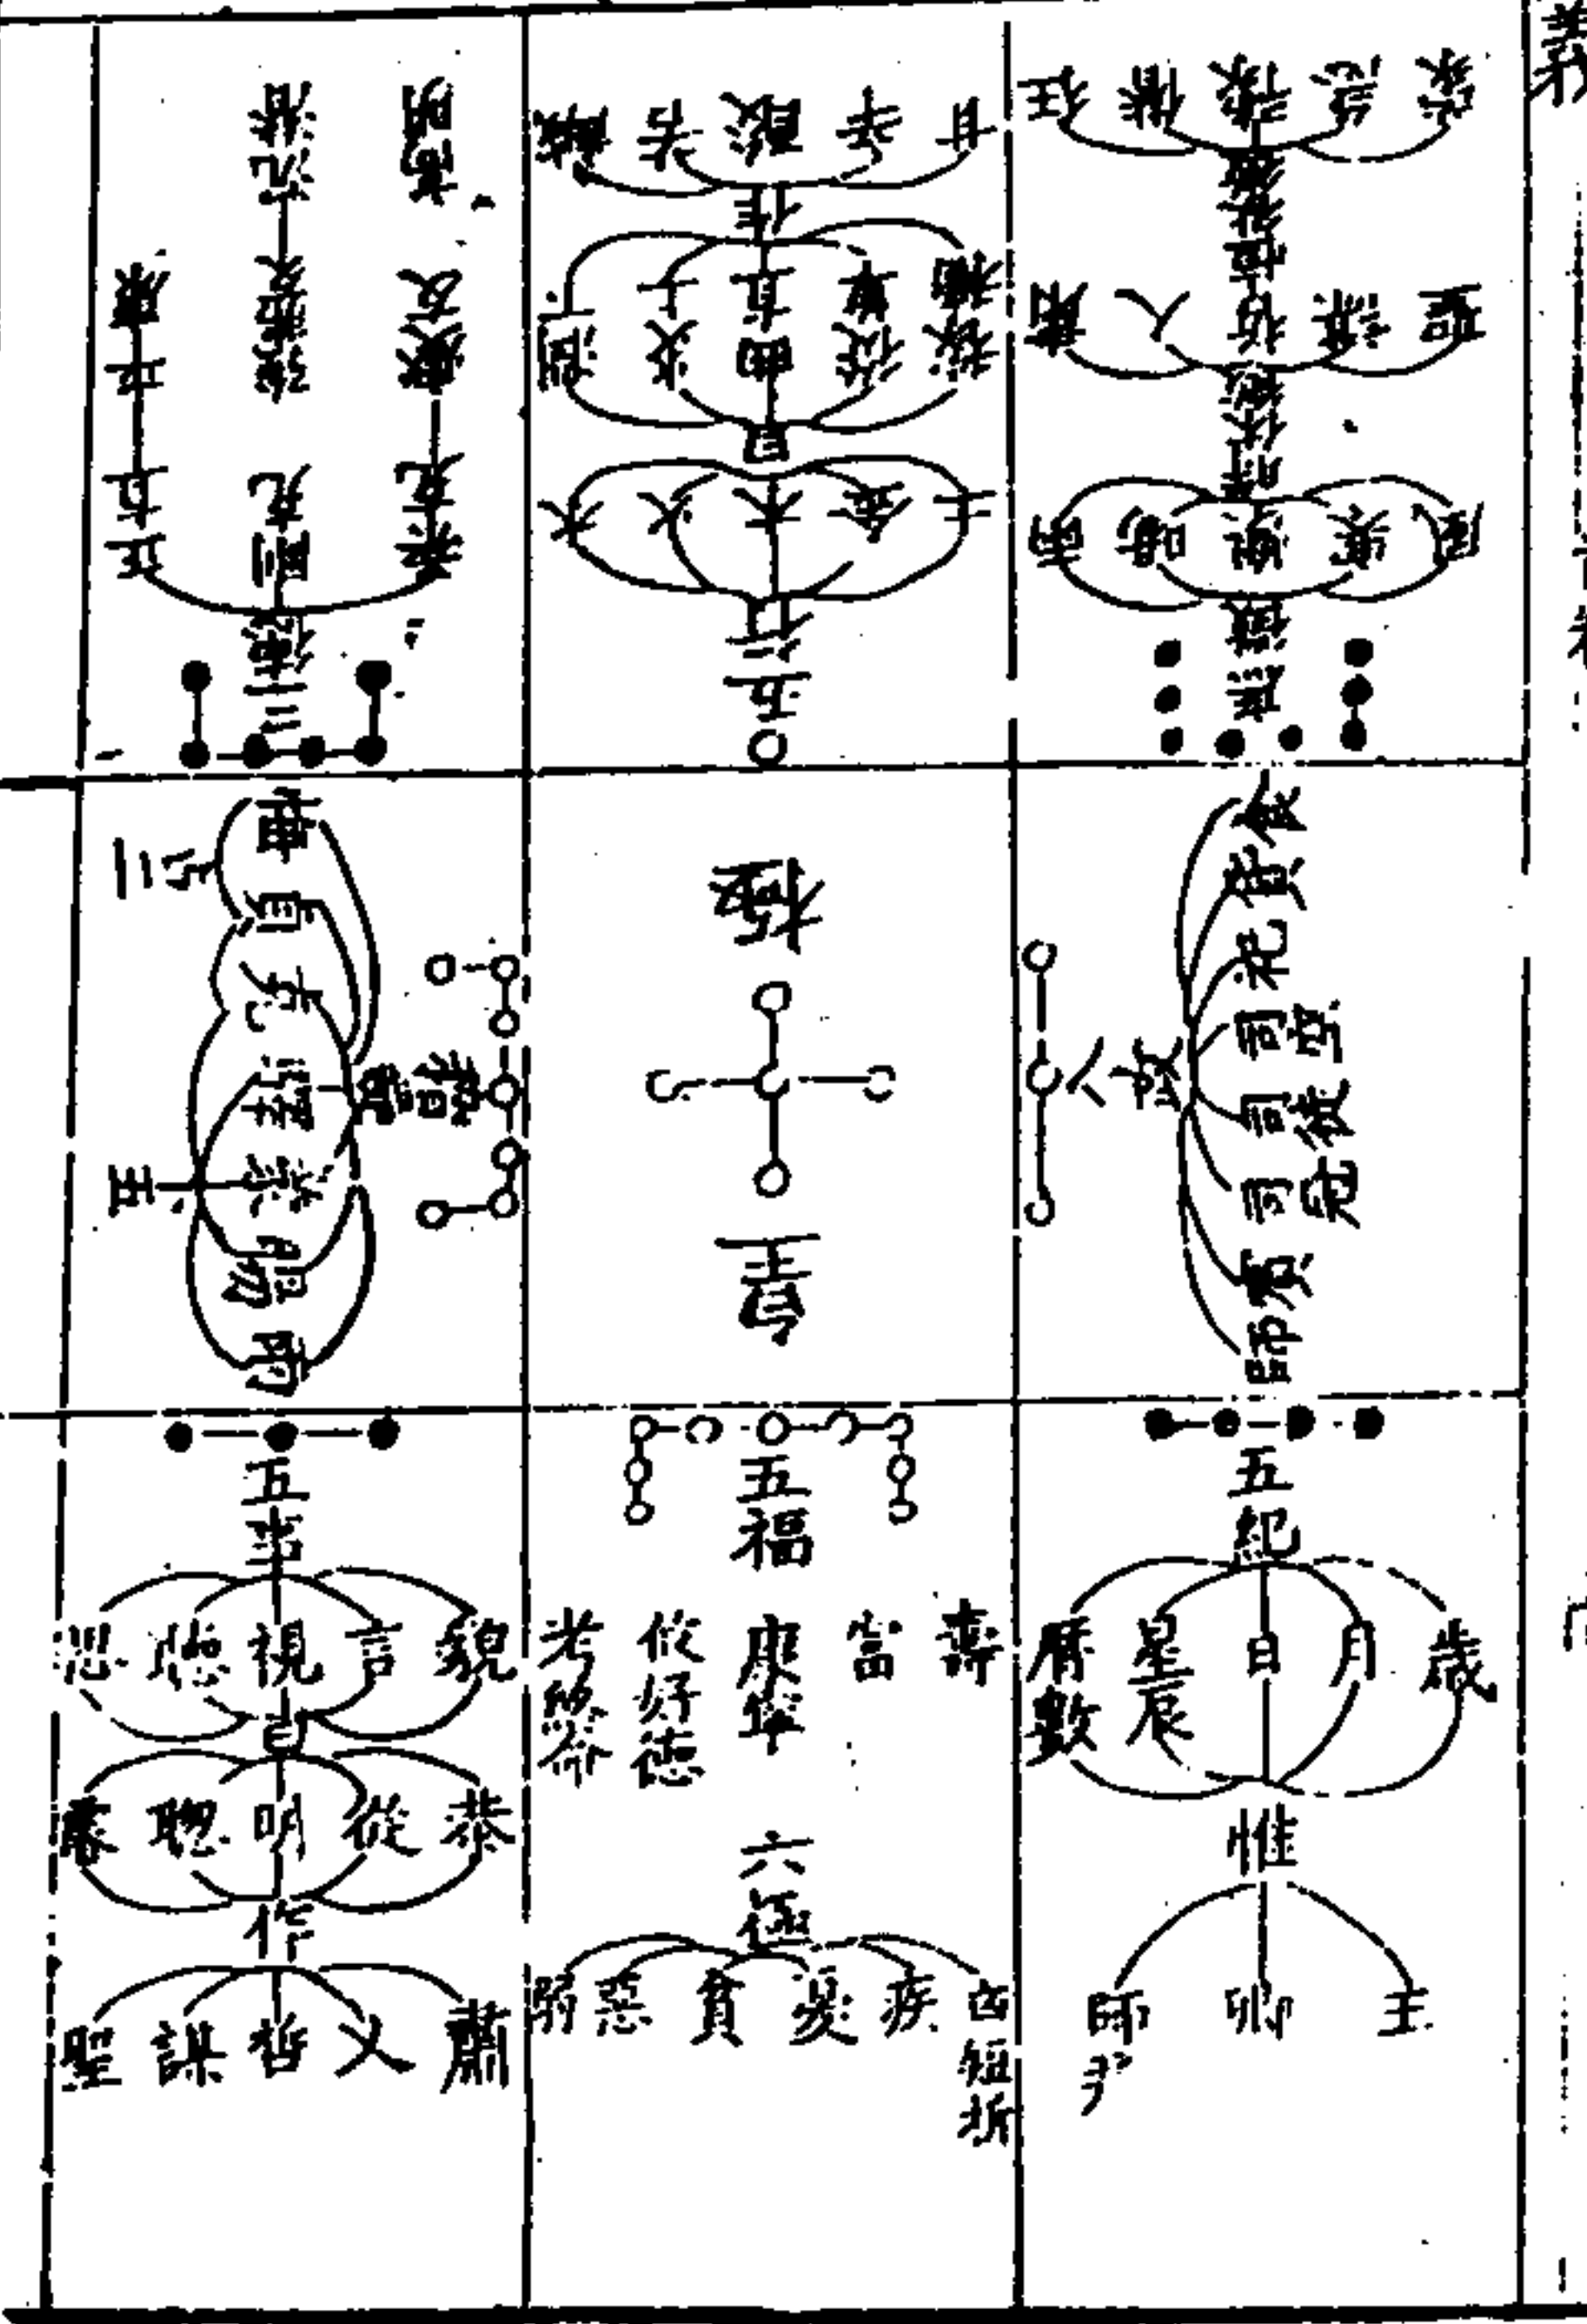 庶徵
雨 暘 燠 寒 風
時
休徵
肅 乂 哲 謀 聖
恒
咎徵
狂 僭 豫 急 蒙
五行
水 火 木 金 土
曰
潤下 炎上 曲直 從革 稼穡
作
鹹 苦 酸 辛 甘
三德
正直 剛克 柔克
平康
沉潛
高明
八政
食
貨
祀
司空
司徒
司寇
賓
師
皇極
稽疑
雨
克
貞
悔
五
占二
五紀
歲 月 日 星辰 曆數
惟
王 卿 師尹
五福
壽 富 康寧 攸好德 考終命
六極
凶短折 疾 憂 貧 惡 弱
五事
貌 言 視 聽 思
曰
恭 從 明 聰 睿
作
肅 乂 哲 謀 聖